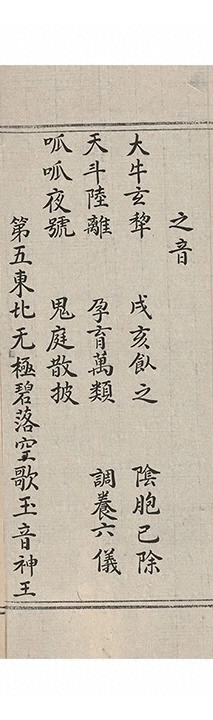 之音
大牛玄犂　戌亥飲之　陰胞已除
天斗陸離　孕育萬類　調養六儀
呱呱夜號　鬼庭散披
第五東北无極碧落空歌玉音神王